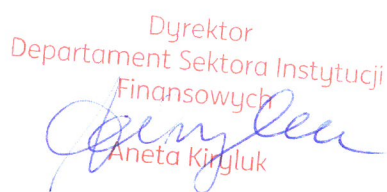 Dyrektor
Departament Sektora Instytucji
Finansowych
Aneta Kiryluk